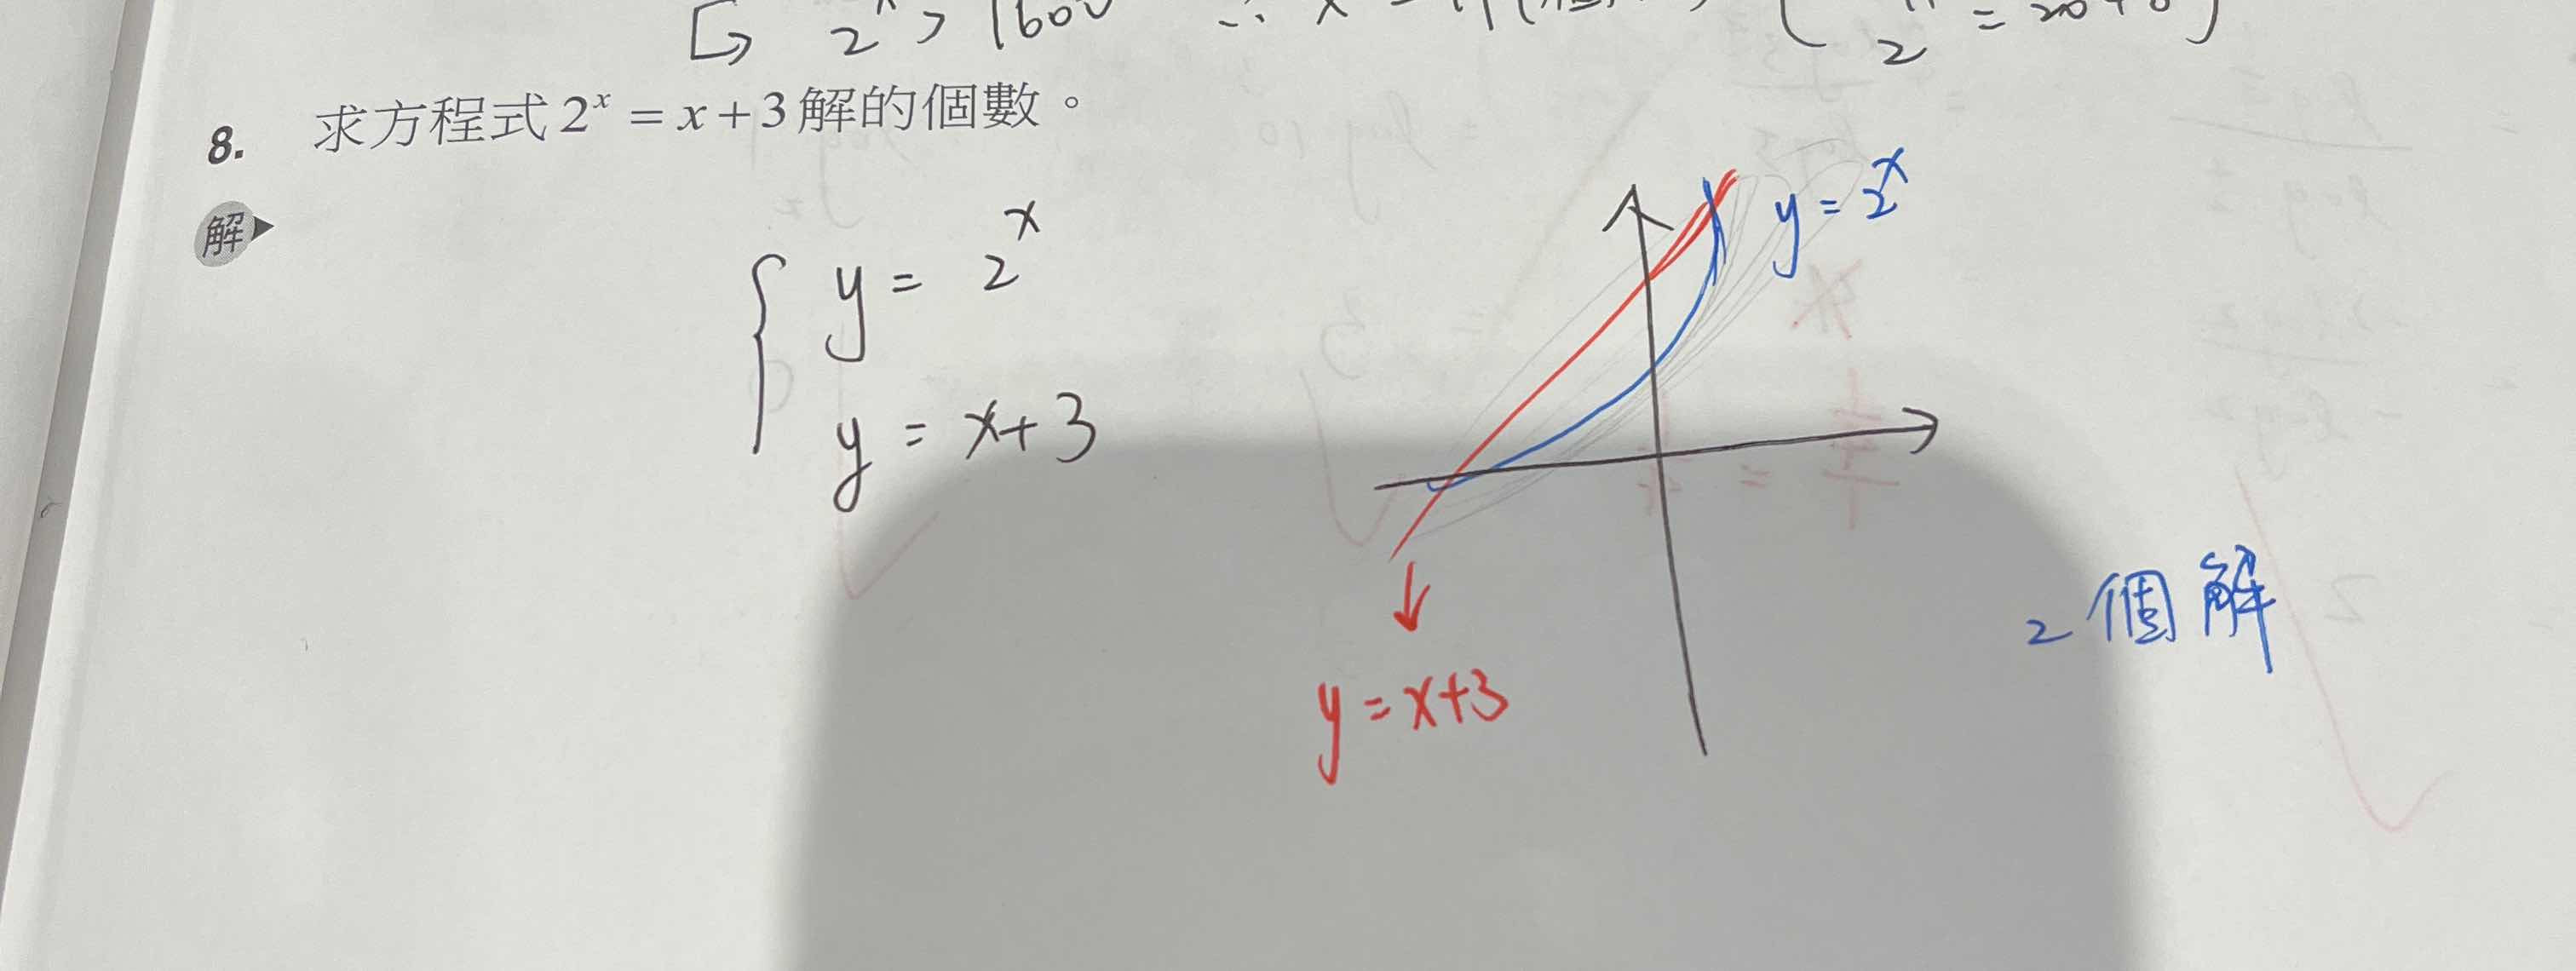 2ˣ > 1600
8. 求方程式 2ˣ = x + 3 解的個數。
解
y = 2ˣ
y = x + 3
y = 2ˣ
y = x + 3
2 個解